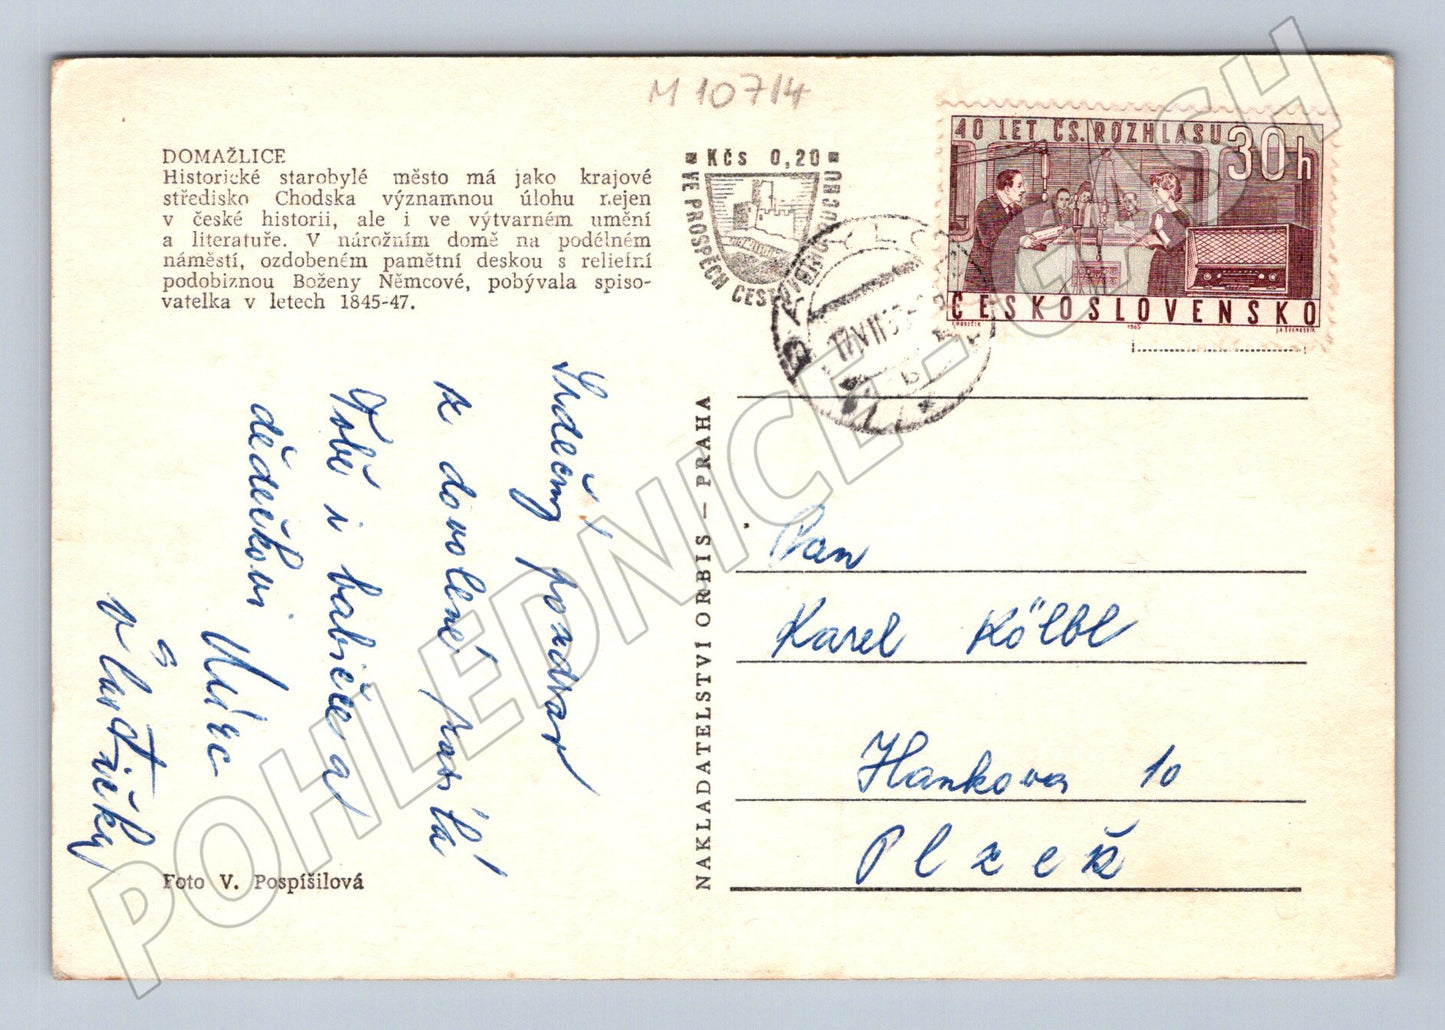 M 107/4
DOMAŽLICE
Historické starobylé město má jako krajové
středisko Chodska významnou úlohu nejen
v české historii, ale i ve výtvarném umění
a literatuře. V nárožním domě na podélném
náměstí, ozdobeném pamětní deskou s reliefní
podobiznou Boženy Němcové, pobývala spiso-
vatelka v letech 1845-47.
Kčs 0,20
VE PROSPĚCH
17.VII
b
40 LET ČS. ROZHLASU 30h
ČESKOSLOVENSKO
1963
J.A.ŠVENGSBÍR
Srdečný pozdrav
z dovolené posílá
Tobě i babičce a
dědečkovi Mirc
Foto V. Pospíšilová
NAKLADATELSTVÍ ORBIS – PRAHA
Pan
Karel Kölbl
Hankova 10
Plzeň
POHLEDNICE-CASH